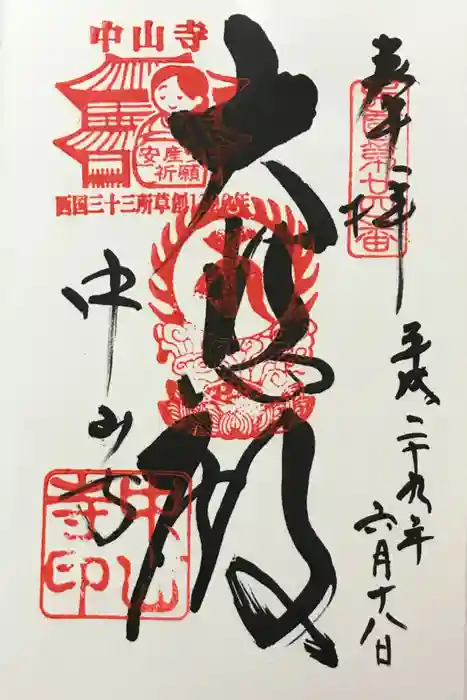 奉拝
西国第廿四番
平成二十九年
六月十八日
大悲殿
中山寺
安産
祈願
西国三十三所草創1300年
中山寺
中山寺印